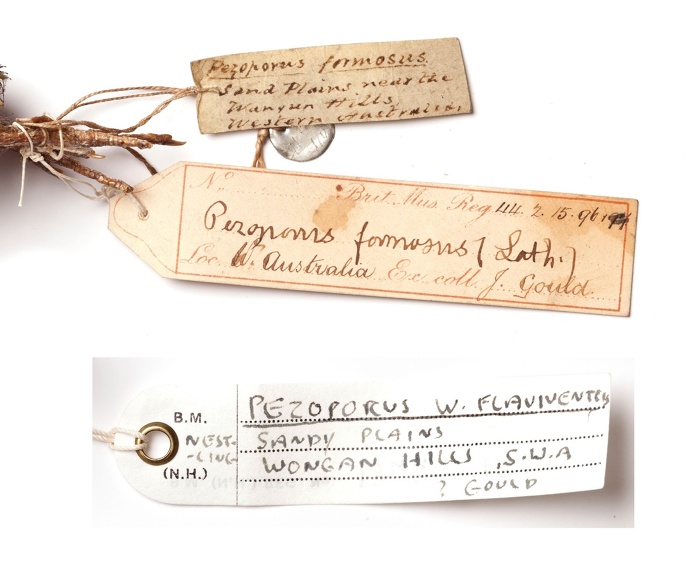 Pezoporus formosus.
Sand Plains near the
Wanyun Hills
Western Australia.
No. Brit Mus Reg 44. 2. 15. 96
Pezoporus formosus (Lath.)
Loc. W. Australia Ex. coll. J. Gould.
B.M.
(N.H.)
NEST-
-LING
PEZOPORUS W. FLAVIVENTRIS
SANDY PLAINS
WONGAN HILLS, S.W.A
? GOULD